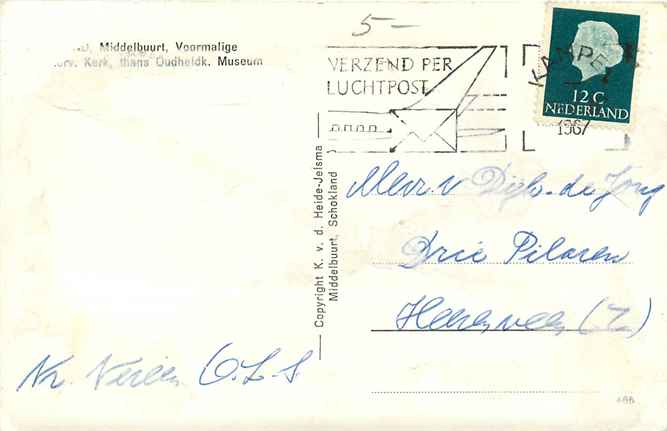 5-
Middelbuurt, Voormalige
Kerk, thans Oudheidk. Museum
VERZEND PER
LUCHTPOST
KAMPE
1967
12 C
NEDERLAND
Copyright K. v. d. Heide-Jelsma
Middelbuurt, Schokland
Mevr. v Dijk-de Jong
Drie Pilaren
Heerenveen (Z)